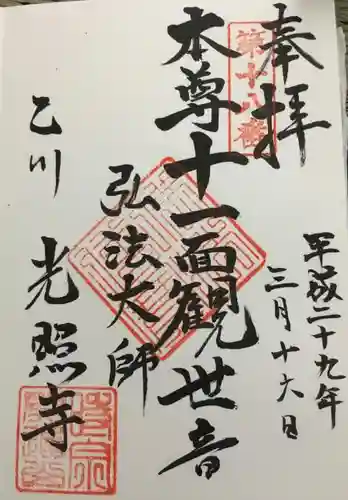 奉拝
第十八番
平成二十九年
三月十六日
本尊十一面観世音
弘法大師
乙川
光照寺